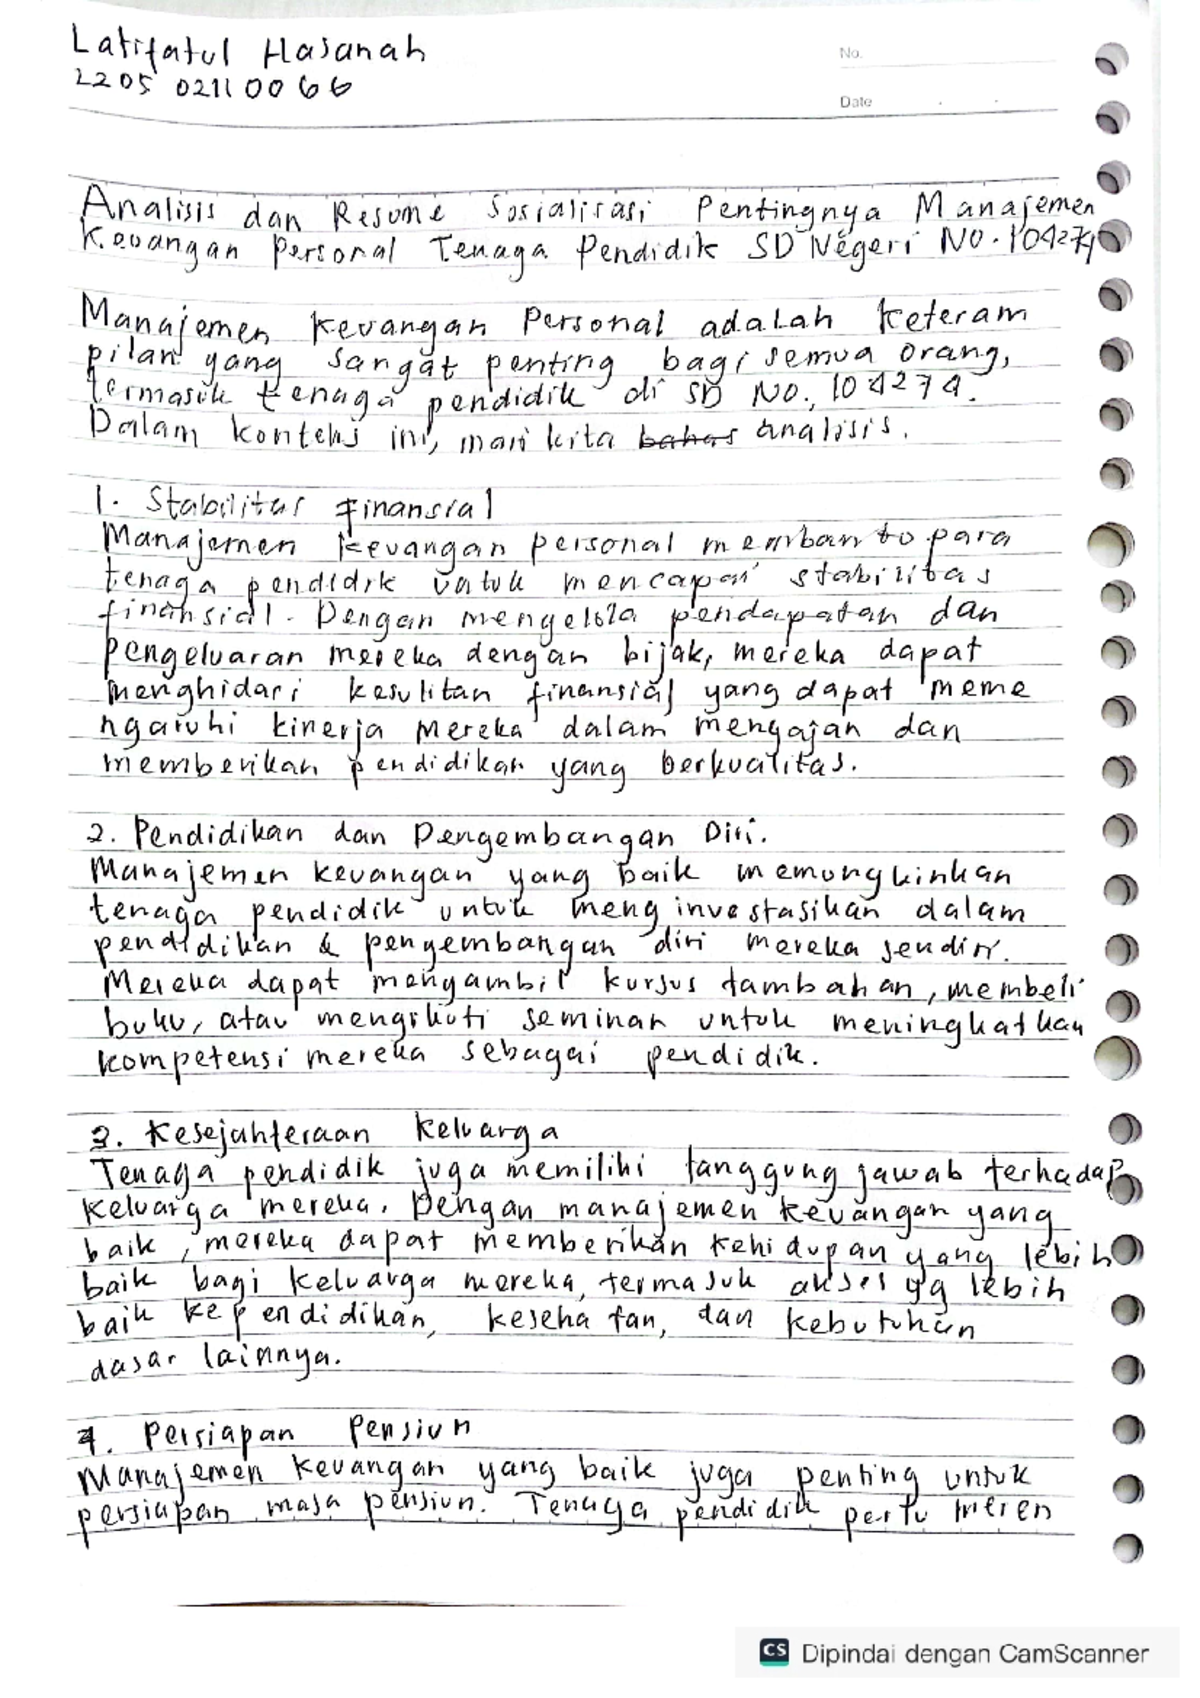 Latifatul Hasanah
2205 0211 0066
No.
Date
Analisis dan Resume Sosialisasi Pentingnya Manajemen
Keuangan Personal Tenaga Pendidik SD Negeri No. 104274
Manajemen keuangan Personal adalah keteram
pilan yang sangat penting bagi semua orang,
termasuk tenaga pendidik di SD No., 104274.
Dalam konteks ini, mari kita bahas analisis.
1. Stabilitas Finansial
Manajemen keuangan personal membantu para
tenaga pendidik untuk mencapai stabilitas
finansial. Dengan mengelola pendapatan dan
pengeluaran mereka dengan bijak, mereka dapat
menghidari kesulitan finansial yang dapat meme
ngaruhi kinerja mereka dalam mengajan dan
memberikan pendidikan yang berkualitas.
2. Pendidikan dan Pengembangan Diri.
Manajemen keuangan yang baik memungkinkan
tenaga pendidik untuk menginvestasikan dalam
pendidikan & pengembangan diri mereka sendiri.
Mereka dapat mengambil kursus tambahan, membeli
buku, atau mengikuti seminar untuk meningkatkan
kompetensi mereka sebagai pendidik.
3. Kesejahteraan Keluarga
Tenaga pendidik juga memiliki tanggung jawab terhadap
keluarga mereka. Dengan manajemen keuangan yang
baik, mereka dapat memberikan kehidupan yang lebih
baik bagi keluarga mereka, termasuk akses yg lebih
baik ke pendidikan, kesehatan, dan kebutuhan
dasar lainnya.
4. Persiapan Pensiun
Manajemen keuangan yang baik juga penting untuk
persiapan masa pensiun. Tenaga pendidik perlu meren
CS Dipindai dengan CamScanner